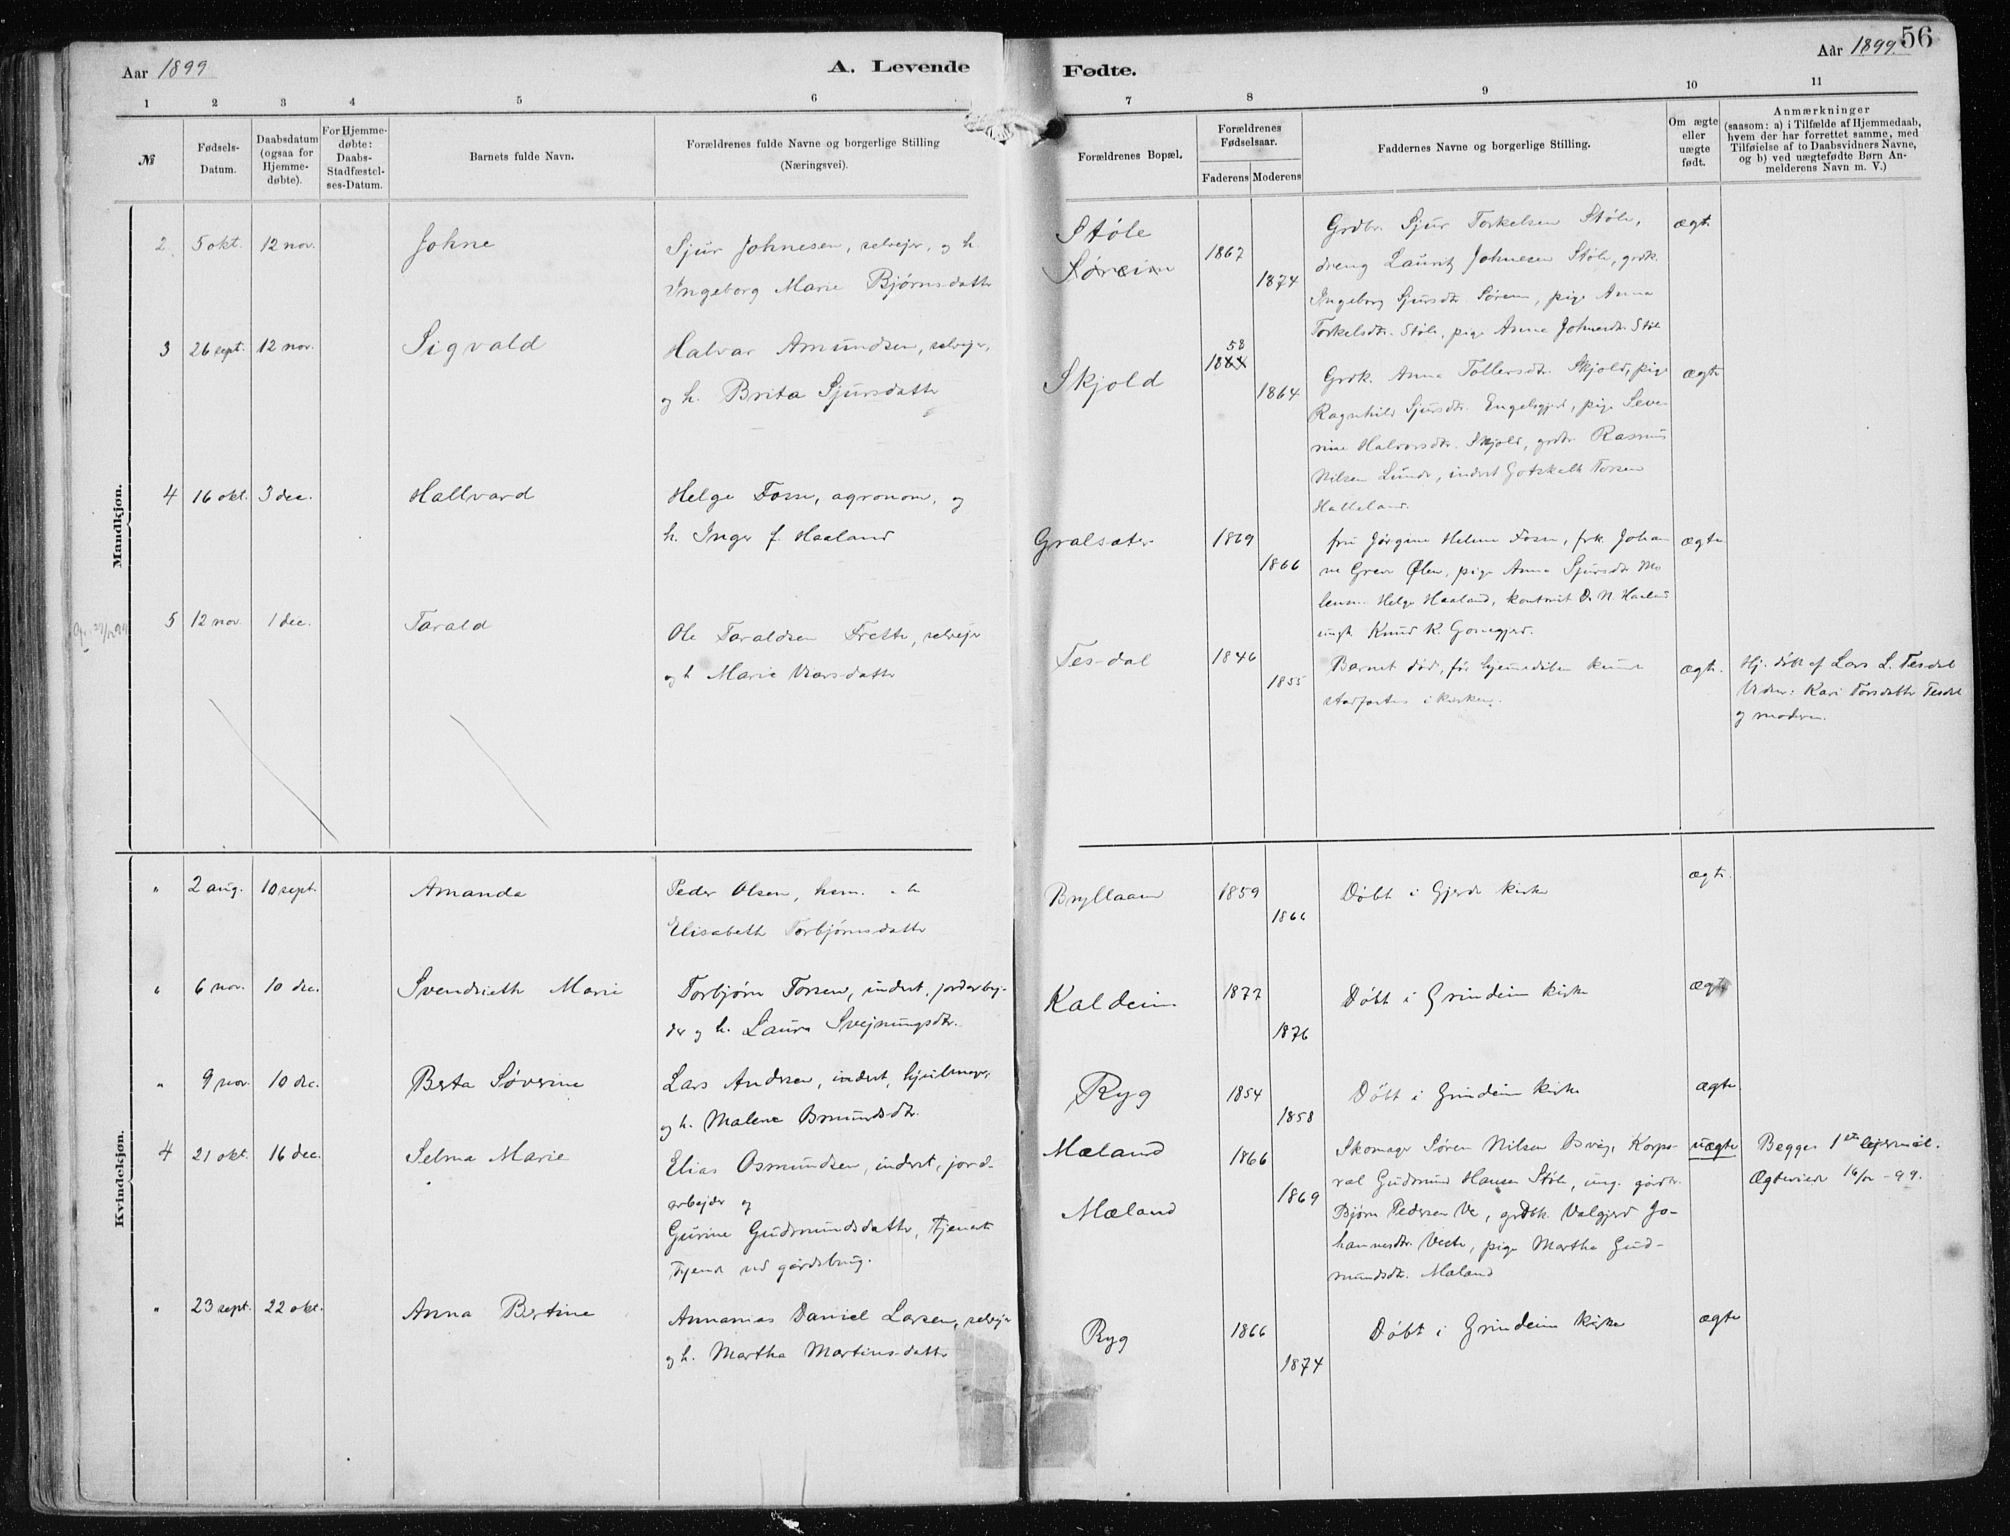 Aar 1899
A. Levende
Fødte.
Aar 1899.
56
1 2 3 4 5 6 7 8 9 10 11
№
Fødsels-
Datum.
Daabsdatum
(ogsaa for
Hjemme-
døbte).
For Hjemme-
døbte:
Daabs-
Stadfæstel-
ses-Datum.
Barnets fulde Navn.
Forældrenes fulde Navne og borgerlige Stilling
(Næringsvei).
Forældrenes Bopæl.
Forældrenes
Fødselsaar.
Faderens Moderens
Faddernes Navne og borgerlige Stilling.
Om ægte
eller
uægte
født.
Anmærkninger
(saasom: a) i Tilfælde af Hjemmedaab,
hvem der har forrettet samme, med
Tilføielse af to Daabsvidners Navne,
og b) ved uægtefødte Børn An-
melderens Navn m. V.)
Mandkjøn.
2 5 okt. 12 nov. Johne
Sjur Johnesen, selvejer, og h.
Ingeborg Marie Bjørnsdatter
Støle
Søreim
1867
1874
Grdbr. Sjur Torkelsen Støle,
dreng Lauritz Johnesen Støle, grdk.
Ingeborg Sjursdtr. Søreim, pige Anna
Torkelsdtr. Støle, pige Anna Johnesdtr. Støle
ægte
3 26 sept. 12 nov. Sigvald
Halvar Amundsen, selvejer,
og h. Brita Sjursdatter
Skjold
58
1864
Grdk. Anna Tollersdtr. Skjold, pige
Ragnhild Sjursdtr. Engelsgjerd, pige Seve-
rine Halvorsdtr. Skjold, grdbr. Rasmus
Nilsen Lunde, inderst Gotskalk Torsen
Halleland.
ægte
4 16 okt. 3 dec. Hallvard
Helge Fosse, agronom, og
h. Inger f. Haaland
Gralsæter
1869
1866
fru Jørgine Helene Fosse, frk. Johan
ne Greve Ølen, pige Anna Sjursdtr.
Helge Haaland,
ungk. Knud K.
ægte
5 12 nov. 1 dec. Tarald
Ole Taraldsen Frette, selvejer
og h. Marie
Tesdal
1846
1855
Barnet død, før hjemmedåben kunne
stadfæstes i kirken.
ægte.
Hj. døbt af Lars L. Tesdal
Vidner: Kari Torsdatter Tesdal
og moderen.
Kvindekjøn.
" 2 aug. 10 sept. Amanda
Peder Olsen, husm. og h.
Elisabeth Torbjørnsdatter
Bryllaam
1859
1866
Døbt i Gjerde kirke
ægte.
" 6 nov. 10 dec. Svendsieth Marie
Torbjørn Torsen, inderst, jordarbej-
der og h. Laura Svejnungsdtr.
Kaldeim
1872
1876
Døbt i Grindeim kirke
ægte
" 9 nov. 10 dec. Berta Søverine
Lars Andersen, inderst, hjulmager,
og h. Malene Osmundsdtr.
Ryg
1854
1858
Døbt i Grindeim kirke
ægte
4 21 okt. 16 dec. Selma Marie
Elias Osmundsen, inderst, jord-
arbejder og
Gurine Gudmundsdatter, tjenest
tjener ved gårdsbrug.
Mæland
Mæland
1866
1869
Skomager Søren Nilsen Osvåg, Korpo-
ral Gudmund Hansen Støle, ung. gårdbr.
Bjørn Pedersen Ve, grdbk. Valgjerd Jo-
hannesdtr. Veste, pige Martha Gud-
mundsdtr. Mæland
uægte
Begges 1ste lejermål.
Ægteviede 16/12 - 99.
" 23 sept. 22 okt. Anna Bertine
Annanias Daniel Larsen, selvejer
og h. Martha Martinusdatter
Ryg
1866
1874
Døbt i Grindeim kirke
ægte